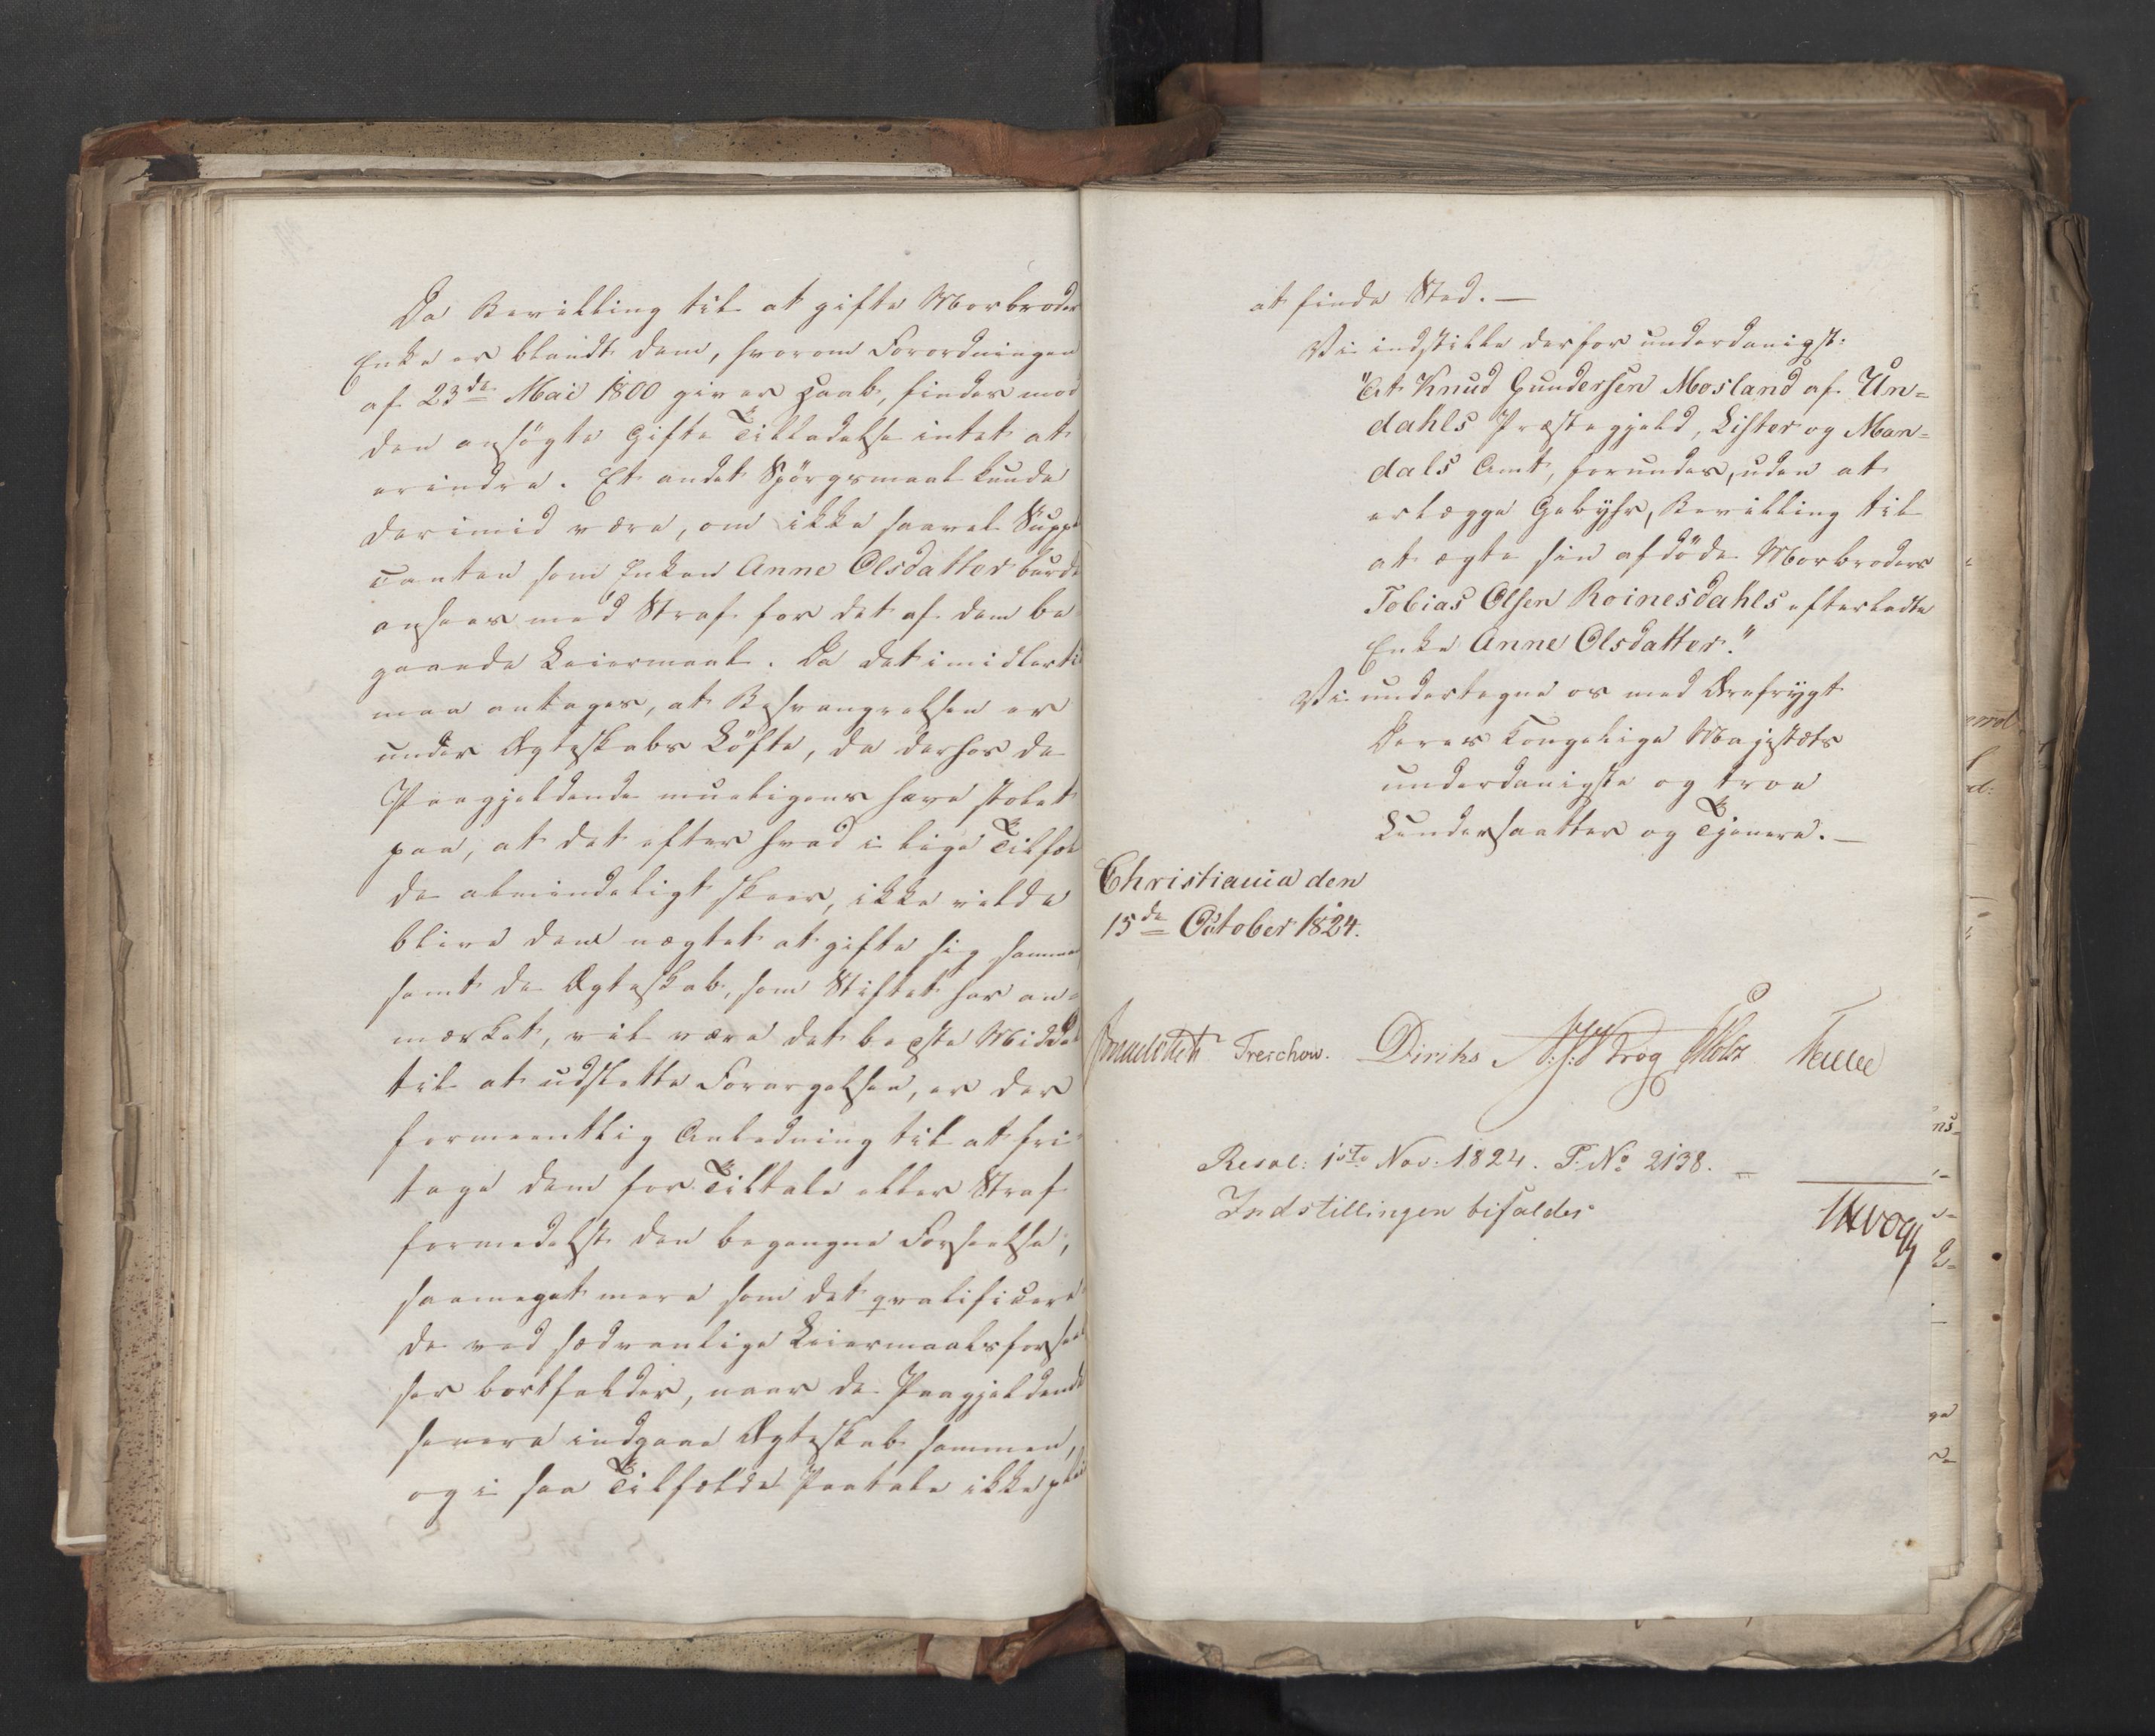 Da Bevilling til at gifte Morbroders
Enke er blandt dem, hvorom Forordningen
af 23de Mai 1800 giver Haab, findes mod
den ansøgte Gifte Tilladelse intet at
erindre. Et andet Spörgsmaal kunde
derimid være, om ikke saavel Suppli
canten som Enken Anne Olsdatter burde
ansees med Straf for det af dem be
gaaede Leiermaal. Da det imidlertid
maa antages, at Besvangrelsen er
under Ægteskabs Löfte, da derhos de
Paagjeldende mueligens have stolet
paa, at det efter hvad i lige Tilfæl
de almindeligt skeer, ikke vilde
blive dem nægtet at gifte sig sammen
samt da Ægteskab, som Stiftet har an=
mærket, vil være det beqste Middel
til at udslette Forargelsen, er der
formeentlig Anledning til at fri
tage dem for Tiltale eller Straf
formedelst den begangne Forseelse,
saameget mere som det qvalificere
de ved sædvanlige Leiermaalsforseel
ser bortfalder, naar de Paagjeldende
senere indgaae Ægteskab sammen,
og i saa Tilfælde Paatale ikke pleier
at finde Sted. —
Vi indstille derfor underdanigst:
"At Knud Gundersen Mosland af Un=
dahls Præstegjeld, Lister og Man=
dals Amt, forundes, uden at
erlægge Gebyhr, Bevilling til
at ægte sin afdöde Morbroders
Tobias Olsen Roinesdahls efterladte
Enke Anne Olsdatter."
Vi undertegne os med Ærefrygt
Deres Kongelige Majestæts
underdanigste og troe
Undersaatter og Tjenere. —
Christiania den
15de October 1824.
Treschow. Diriks Krog Holst
Resol: 1ste Nov: 1824. P. No 2138. —
Indstillingen bifaldes